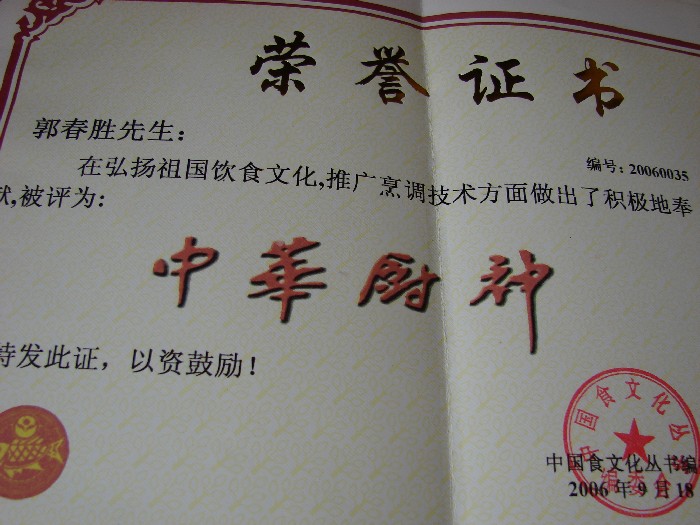 荣誉证书
郭春胜先生：
编号：20060035
在弘扬祖国饮食文化,推广烹调技术方面做出了积极地奉
献,被评为:
中華厨神
特发此证，以资鼓励！
中国食文化丛
编委会
中国食文化丛书编
2006年9月18